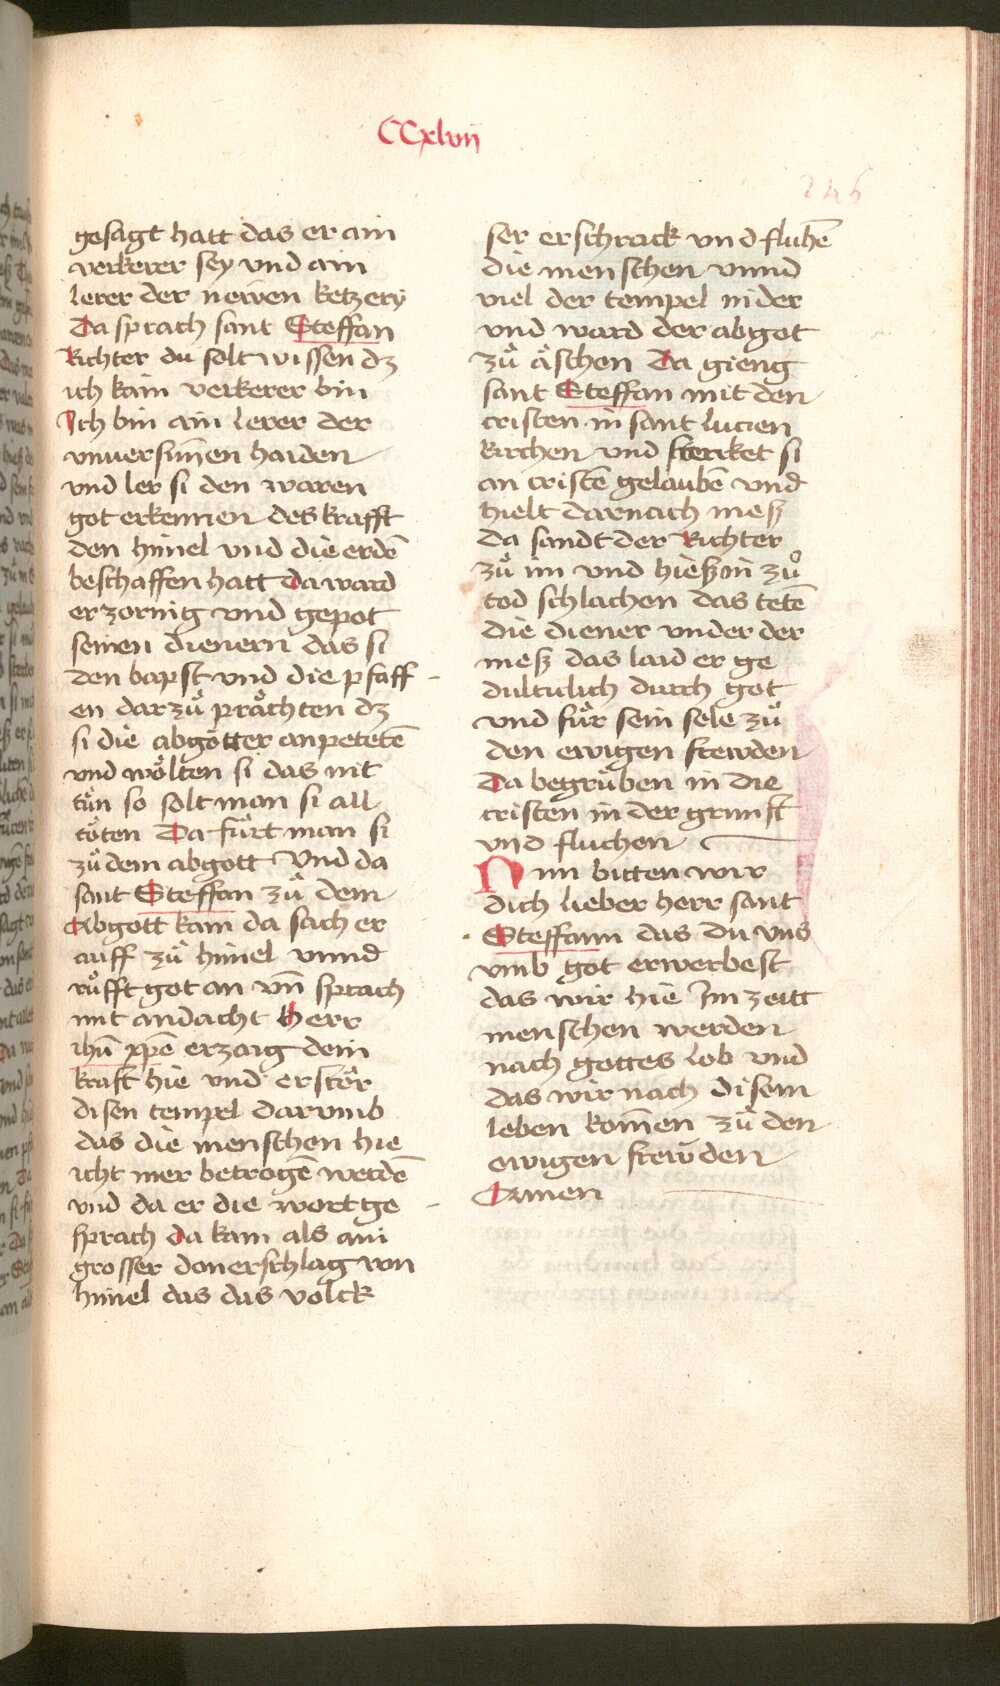 CCxlvii
246
gesagt hatt das er ain
verkerer sey vnd ain
lerer der newen ketzery
Da sprach sant Steffan
Richter du solt wissen dz
ich kain verkerer bin
Ich bin ain lerer der
vnuersiñen haiden
vnd ler si den waren
got erkennen des krafft
den himel vnd die erdē
beschaffen hatt da ward
er zornig vnd gepot
seinen dienern das si
den bapst vnd die pfaff
en darzuͦ praͤchten dz
si die abgoͤtter anpetetē
vnd woͤlten si das nit
tuͤn so solt man si all
toͤten Da fuͤrt man si
zuͦ dem abgott Vnd da
sant Steffan zuͦ dem
Abgott kam da sach er
auff zuͦ himel vnnd
ruͦfft got an vn̄ sprach
mit andacht herr
ihū xp̄e erzaig dein
kraft hie vnd erstoͤr
disen tempel darvmb
das die menschen hie
icht mer betrogē werdē
vnd da er die wort ge
sprach da kam als ain
grosser donerschlag von
himel das das volck
ser erschrack vnd fluhē
die menschen vnnd
viel der tempel nider
vnd ward der abgot
zuͦ aͤschen Da gieng
sant Steffan mit den
cristen in sant lucien
kirchen vnd sterket si
an cristē gelaubē vnd
hielt darnach meß
da sandt der Richter
zuͦ im vnd hieß in zuͦ
tod schlachen das tetē
die diener vnder der
meß das laid er ge
dultiklich durch got
vnd fuͦr sein sele zuͦ
den ewigen frewden
Da begruben in die
cristen in der grunft
vnd fluchen
Nun bitten wir
dich lieber herr sant
Steffann das du vns
vmb got erwerbest
das wir hie Im zeitt
menschen werden
nach gottes lob vnd
das wir nach disem
leben komen zuͦ den
ewigen frewden
Amen